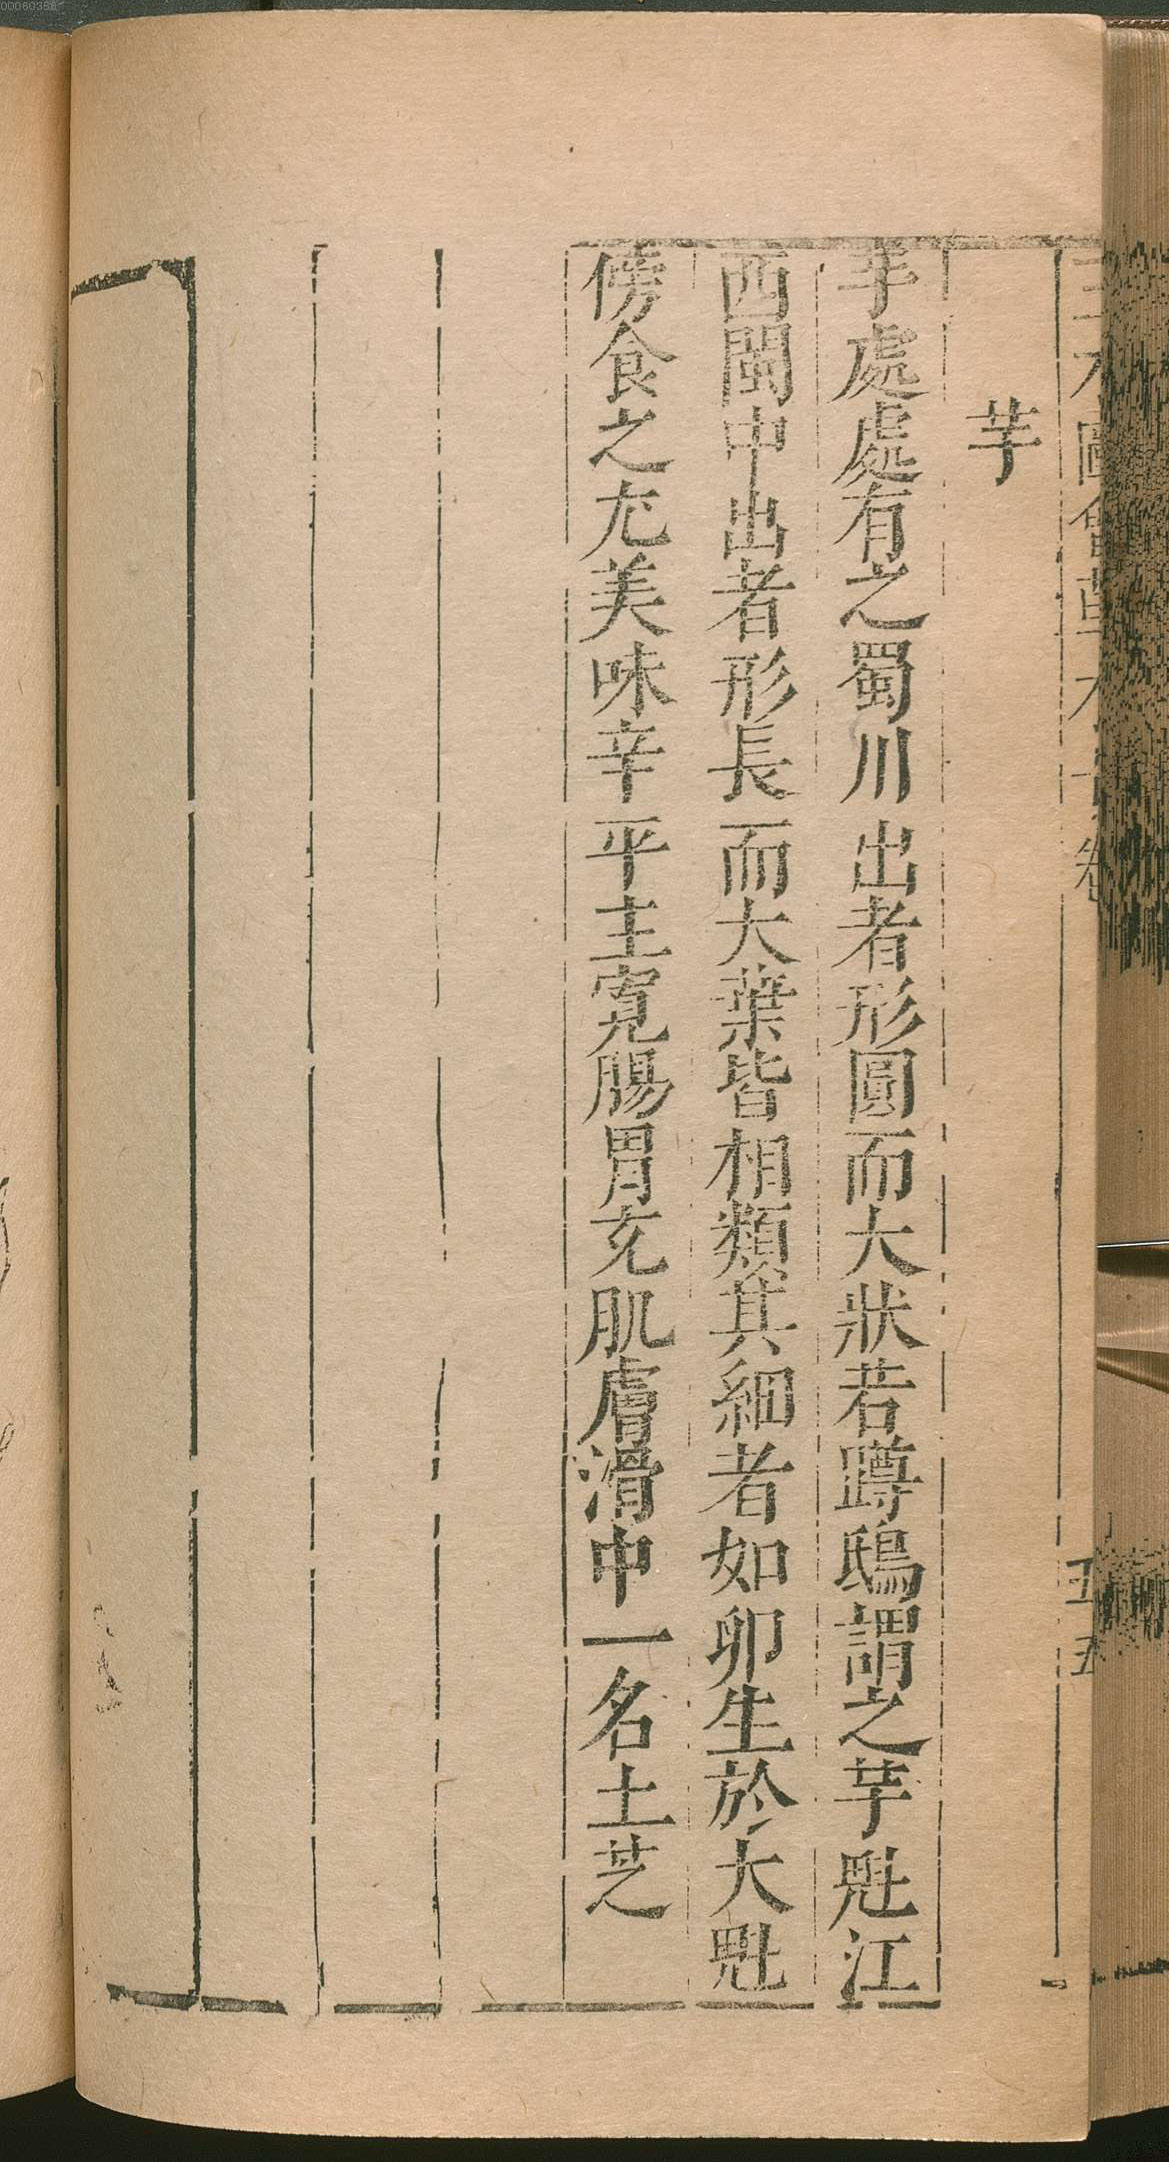 芋
芋處處有之蜀川出者形圓而大狀若蹲鴟謂之芋魁江
西閩中出者形長而大葉皆相類其細者如卵生於大魁
傍食之尤美味辛平主寬腸胃充肌膚滑中一名土芝
五五